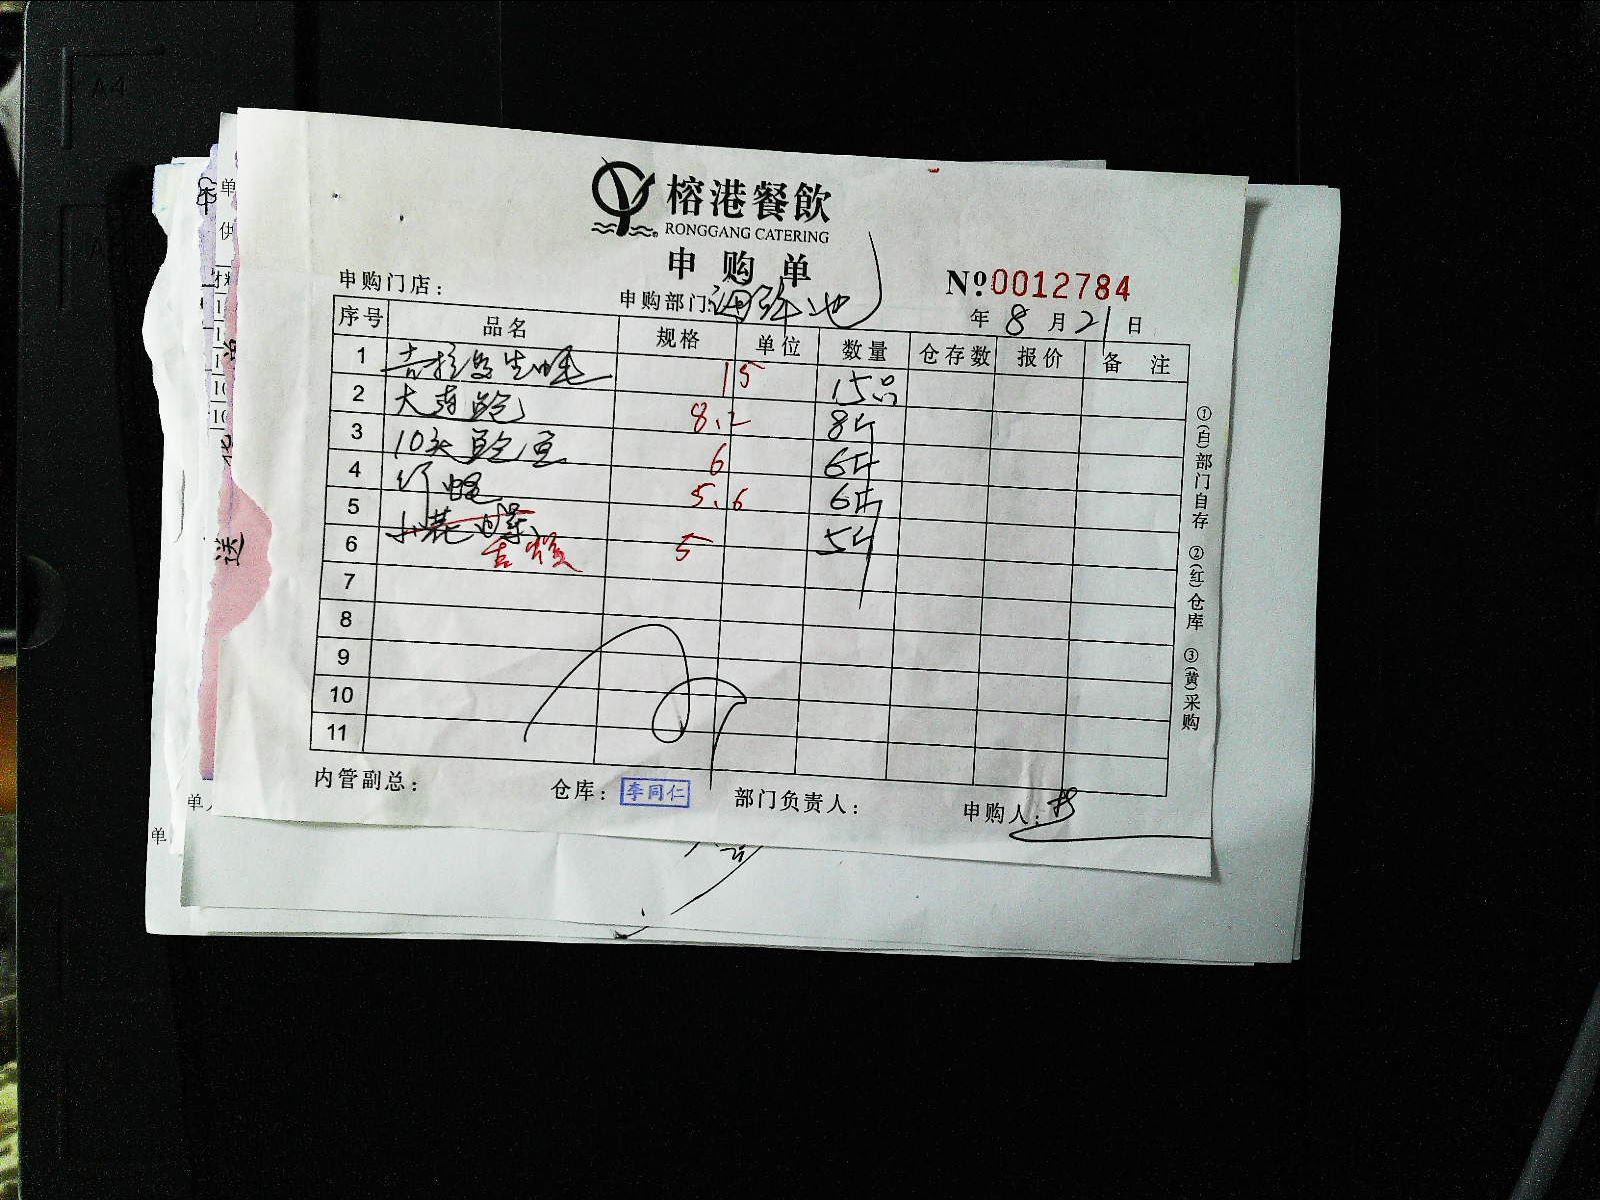 榕港餐飲
RONGGANG CATERING
申购单
申购门店：
申购部门：海鲜池
№ 0012784
年 8 月 21 日
序号 品名 规格 单位 数量 仓存数 报价 备注
1 吉拉多生蚝 15 15只
2 大连鲍 8.2 8斤
3 10头鲍鱼 6 6斤
4 5.6 6斤
5 小花螺
6 5 5斤
7
8
9
10
11
内管副总： 仓库：李同仁 部门负责人： 申购人：
①(白)部门自存 ②(红)仓库 ③(黄)采购
单
供
材料
送
单
A4